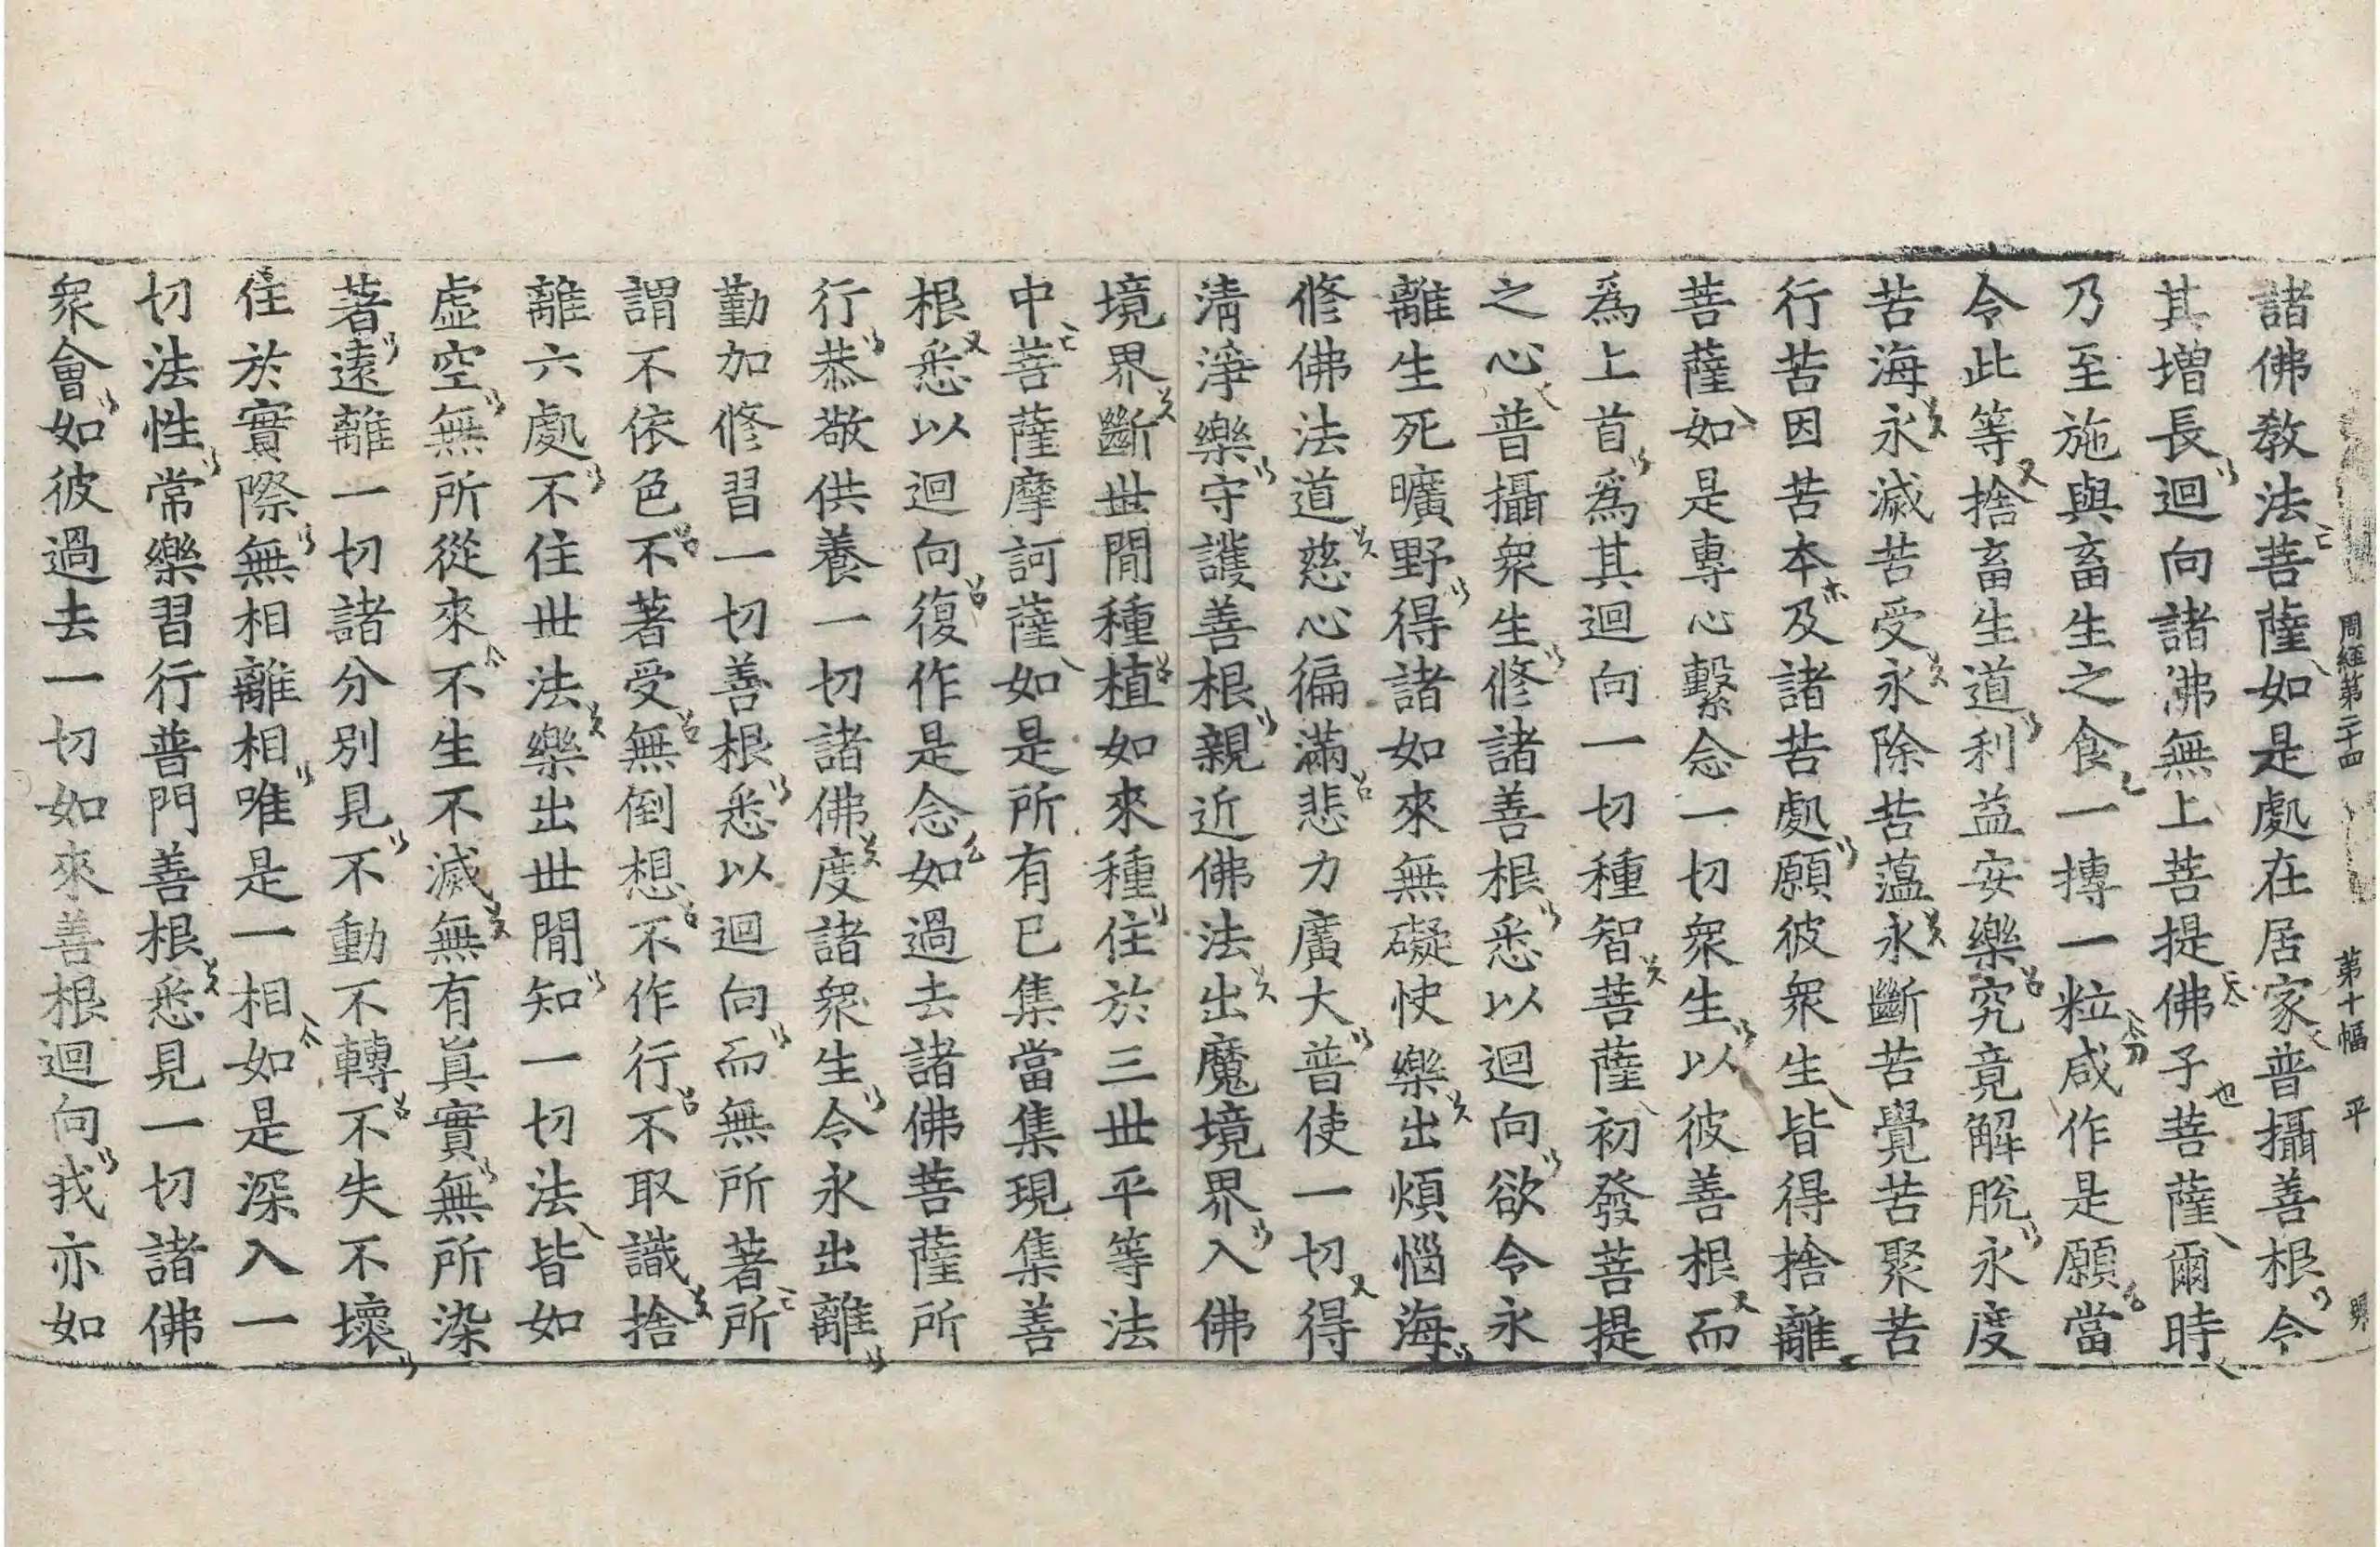 周經第二十四 第十幅 平
諸佛教法菩薩如是處在居家普攝善根令
其增長迴向諸佛無上菩提佛子菩薩爾時
乃至施與畜生之食一摶一粒咸作是願當
令此等捨畜生道利益安樂究竟解脫永度
苦海永滅苦受永除苦蘊永斷苦覺苦聚苦
行苦因苦本及諸苦處願彼衆生皆得捨離
菩薩如是專心繫念一切衆生以彼善根而
爲上首爲其迴向一切種智菩薩初發菩提
之心普攝衆生修諸善根悉以迴向欲令永
離生死曠野得諸如來無礙快樂出煩惱海
修佛法道慈心徧滿悲力廣大普使一切得
淸淨樂守護善根親近佛法出魔境界入佛
境界斷世間種植如來種住於三世平等法
中菩薩摩訶薩如是所有已集當集現集善
根悉以迴向復作是念如過去諸佛菩薩所
行恭敬供養一切諸佛度諸衆生令永出離
勤加修習一切善根悉以迴向而無所著所
謂不依色不著受無倒想不作行不取識捨
離六處不住世法樂出世間知一切法皆如
虛空無所從來不生不滅無有眞實無所染
著遠離一切諸分別見不動不轉不失不壞
住於實際無相離相唯是一相如是深入一
切法性常樂習行普門善根悉見一切諸佛
衆會如彼過去一切如來善根迴向我亦如